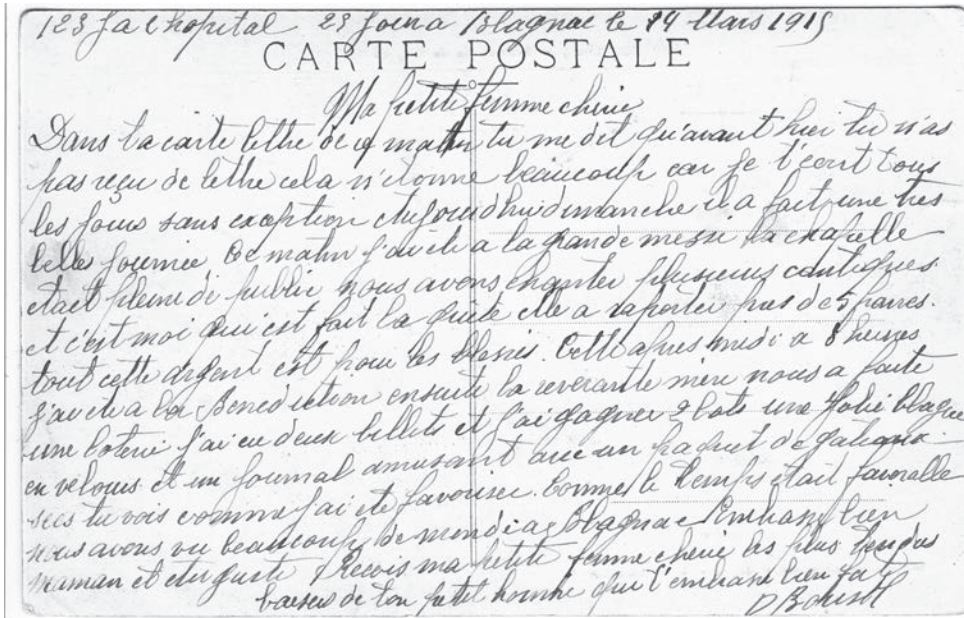 123 Ja l hopital 23 Jour a Blagnac le 14 Mars 1915
CARTE POSTALE
Ma petite femme cherie
Dans ta carte lettre de ce matin tu me dit qu'avant hier tu n'as
pas reçu de lettre cela n'etonne beaucoup car je t'ecrit tous
les jours sans exception aujourdhui dimanche il a fait une tres
belle journée. Ce matin j'ai ete a la grande messe la chapelle
etait pleine de public nous avons chanter plusieurs cantiques
et c'est moi qui est fait la quete elle a raporter pres de 5 francs.
tout cette argent est pour les blesses. Cette apres midi a 8 heures
j'ai ete a la Benediction ensuite la reverante mere nous a faite
une loterie j'ai eu deux billets et j'ai gagner 2 lots une Jolie blague
en velours et un journal amusant avec un paquet de gateaux
secs tu vois comme j'ai ete favoriser. Comme le temps etait favorable
nous avons vu beaucoup de monde a Blagnac Embrasse bien
maman et Auguste Recois ma petite femme cherie les plus tendres
baisers de ton petit homme qui t'embrasse bien fort